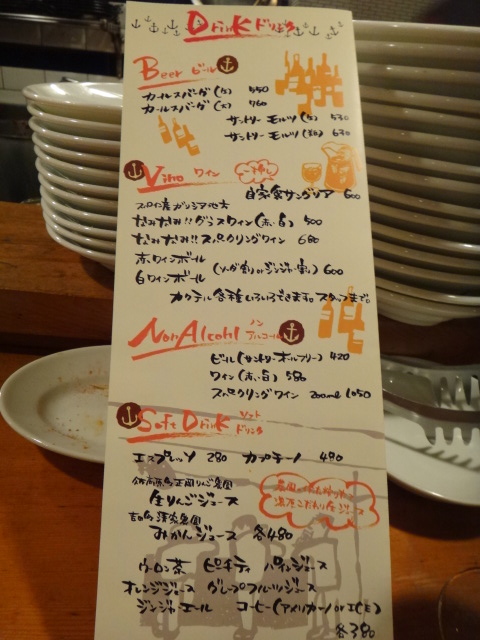 Drink ドリンク
Beer ビール
カールスバーグ(小) 550
カールスバーグ(大) 760
サントリー モルツ(小) 530
サントリー モルツ(中) 630
Vino ワイン
自家製サングリア 600
スペイン産ガリシア地方
なみなみ!!グラスワイン(赤・白) 500
なみなみ!!スパークリングワイン 680
赤ワインボール
白ワインボール (ソーダ割 or ジンジャー割) 600
カクテル各種いろいろできます。スタッフまで。
Non Alcohl ノンアルコール
ビール(サントリーオールフリー) 420
ワイン(赤・白) 580
スパークリングワイン 200ml 1050
Soft Drink ソフトドリンク
エスプレッソ 280 カプチーノ 480
りんご農園
生りんごジュース
農園
みかんジュース 各480
ウーロン茶 ピーチティ パインジュース
オレンジジュース グレープフルーツジュース
ジンジャーエール コーヒー(アメリカーノ or ICE)
各380